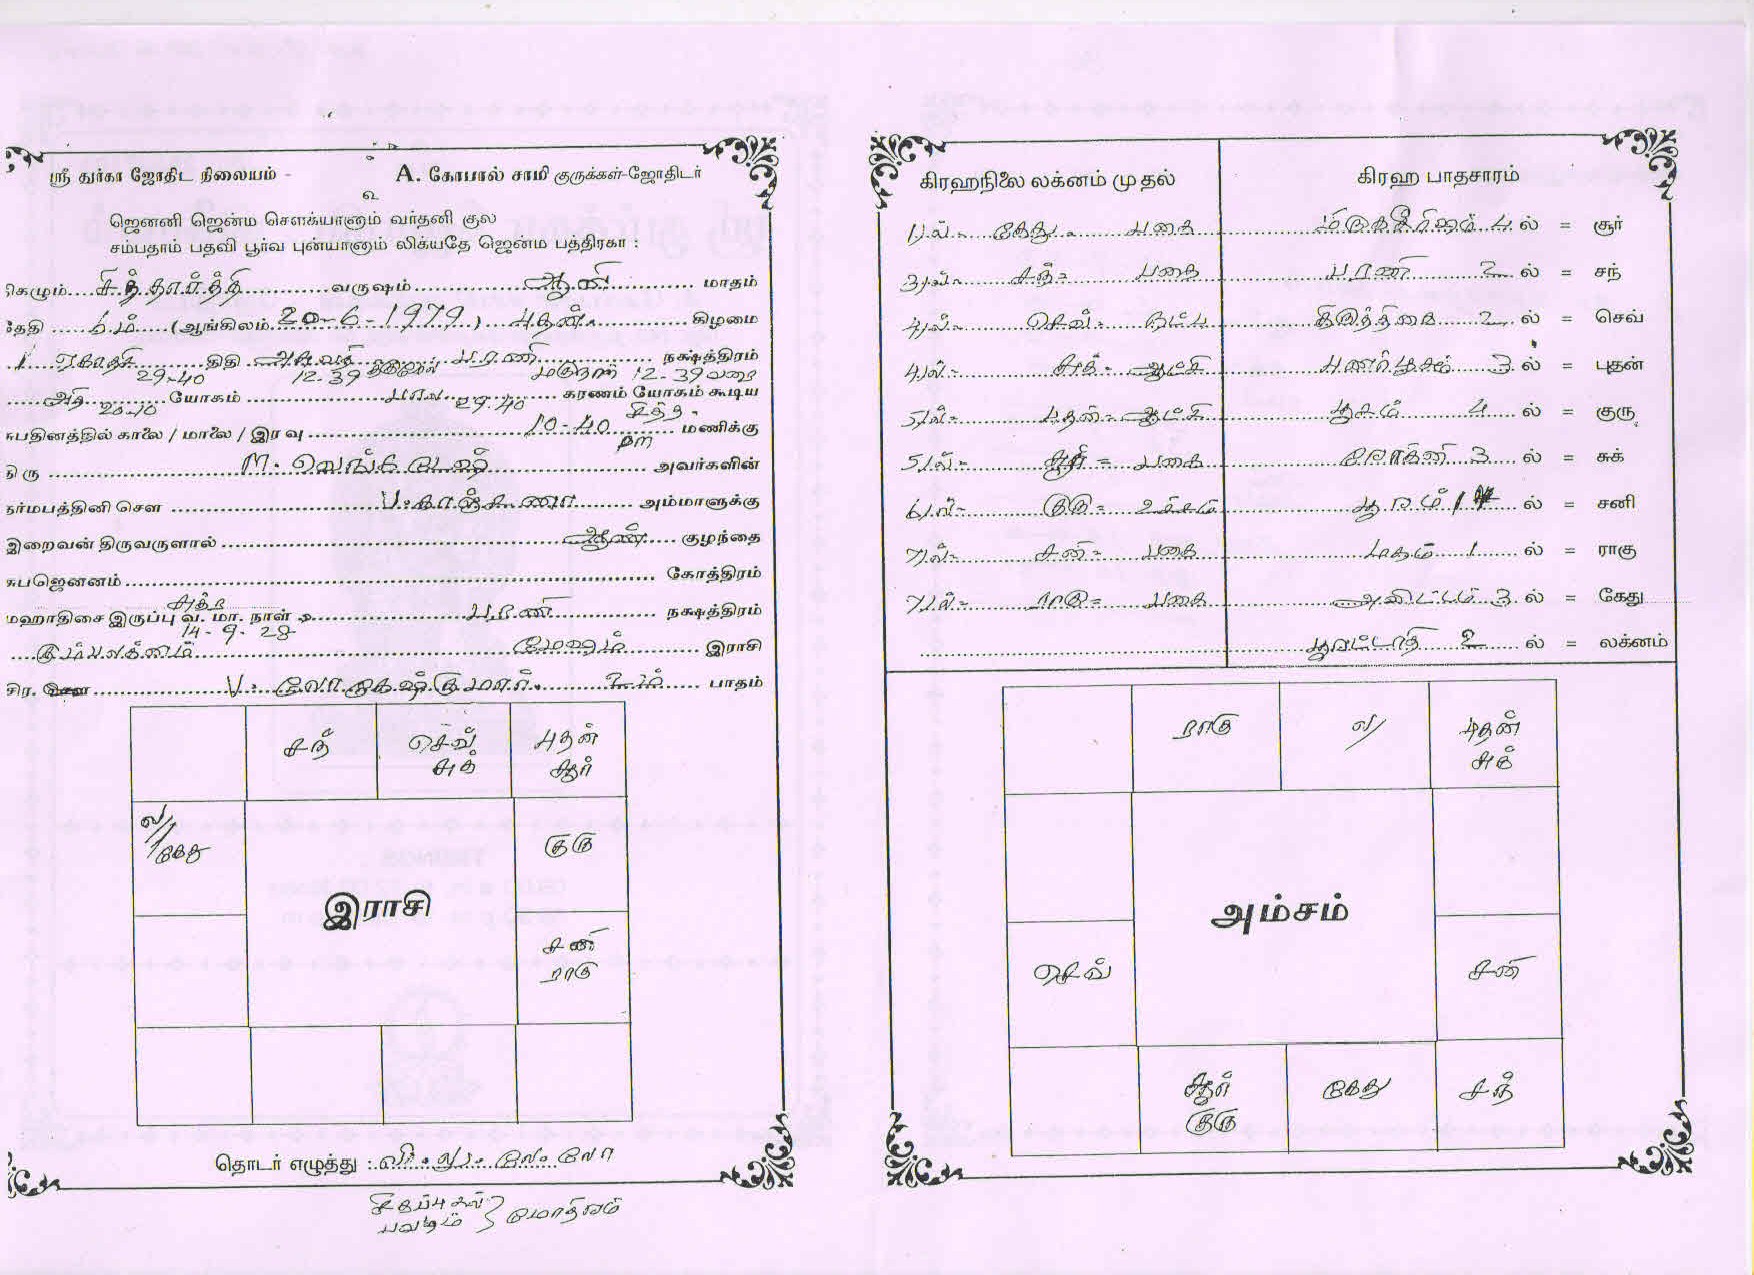 ஸ்ரீ துர்கா ஜோதிட நிலையம் - A. கோபால் சாமி குருக்கள்-ஜோதிடர்
உ
ஜெனனி ஜென்ம சௌக்யானும் வர்தனி குல
சம்பதாம் பதவி பூர்வ புன்யானும் லிக்யதே ஜென்ம பத்திரகா :
கெழும் சித்தார்த்தி வருஷம் ஆனி மாதம்
தேதி 6ம் (ஆங்கிலம் 20-6-1979) புதன் கிழமை
ஏகாதசி திதி அசுவதி பரணி நக்ஷத்திரம்
29-40 12-39 மறுநாள் 12-39 வரை
யோகம் பவ கரணம் யோகம் கூடிய
20-10 29-40 சித்த
சுபதினத்தில் காலை / மாலை / இரவு 10-40 மணிக்கு
pm
திரு M. வெங்கடேஷ் அவர்களின்
தர்மபத்தினி சௌ V. காஞ்சனா அம்மாளுக்கு
இறைவன் திருவருளால் ஆண் குழந்தை
சுபஜெனனம் கோத்திரம்
சுக்ர
மஹாதிசை இருப்பு வ. மா. நாள் பரணி நக்ஷத்திரம்
14-9-28
கும்பலக்னம் மேஷம் இராசி
சிர. V. லோகேஷ்குமார். 2ம் பாதம்
சந் செவ் சுக் புதன் சூர்
ல/ கேது குரு
இராசி
சனி ராகு
தொடர் எழுத்து : லி. லு. லே. லோ
சிகப்புகல் பவழம் } மோதிரம்
கிரஹநிலை லக்னம் முதல் கிரஹ பாதசாரம்
1ல் - கேது - பகை மிருகசீரிஷம் 4 ல் = சூர்
3ல் - சந் = பகை பரணி 2 ல் = சந்
4ல் - செவ் - நட்பு கிருத்திகை 2 ல் = செவ்
4ல் - சுக் - ஆட்சி புணர்பூசம் 3 ல் = புதன்
5ல் - புதன் - ஆட்சி பூசம் 4 ல் = குரு
5ல் - சூரி = பகை ரோகிணி 3 ல் = சுக்
6ல் - குரு = உச்சம் பூரம் 1 ல் = சனி
7ல் - சனி - பகை மகம் 1 ல் = ராகு
7ல் - ராகு = பகை அவிட்டம் 3 ல் = கேது
பூரட்டாதி 2 ல் = லக்னம்
ராகு ல/ புதன் சுக்
அம்சம்
செவ் சனி
சூர் குரு கேது சந்